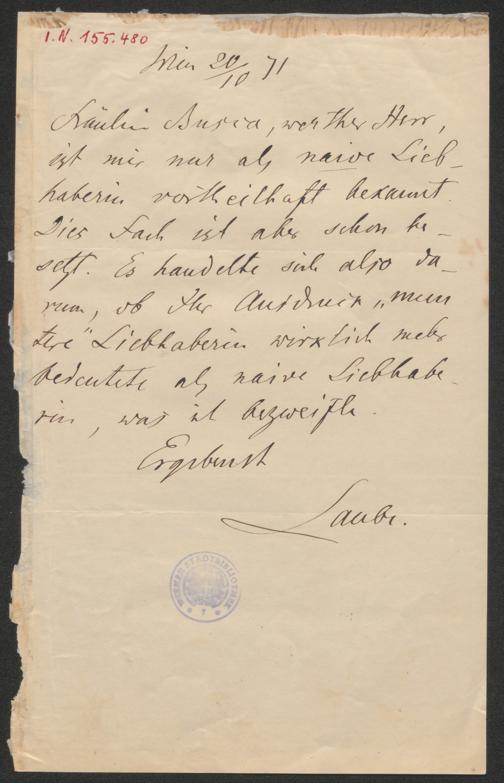 I.N. 155.480
Wien 20/10 71
Fräulein Busca, werther Herr,
ist mir nur als naive Lieb-
haberin vortheilhaft bekannt.
Dies Fach ist aber schon be-
setzt. Es handelte sich also da-
rum, ob Ihr Ausdruck „mun
tere" Liebhaberin wirklich mehr
bedeutete als naive Liebhabe-
rin, was ich bezweifle.
Ergebenst
Laube.
WIENER STADTBIBLIOTHEK